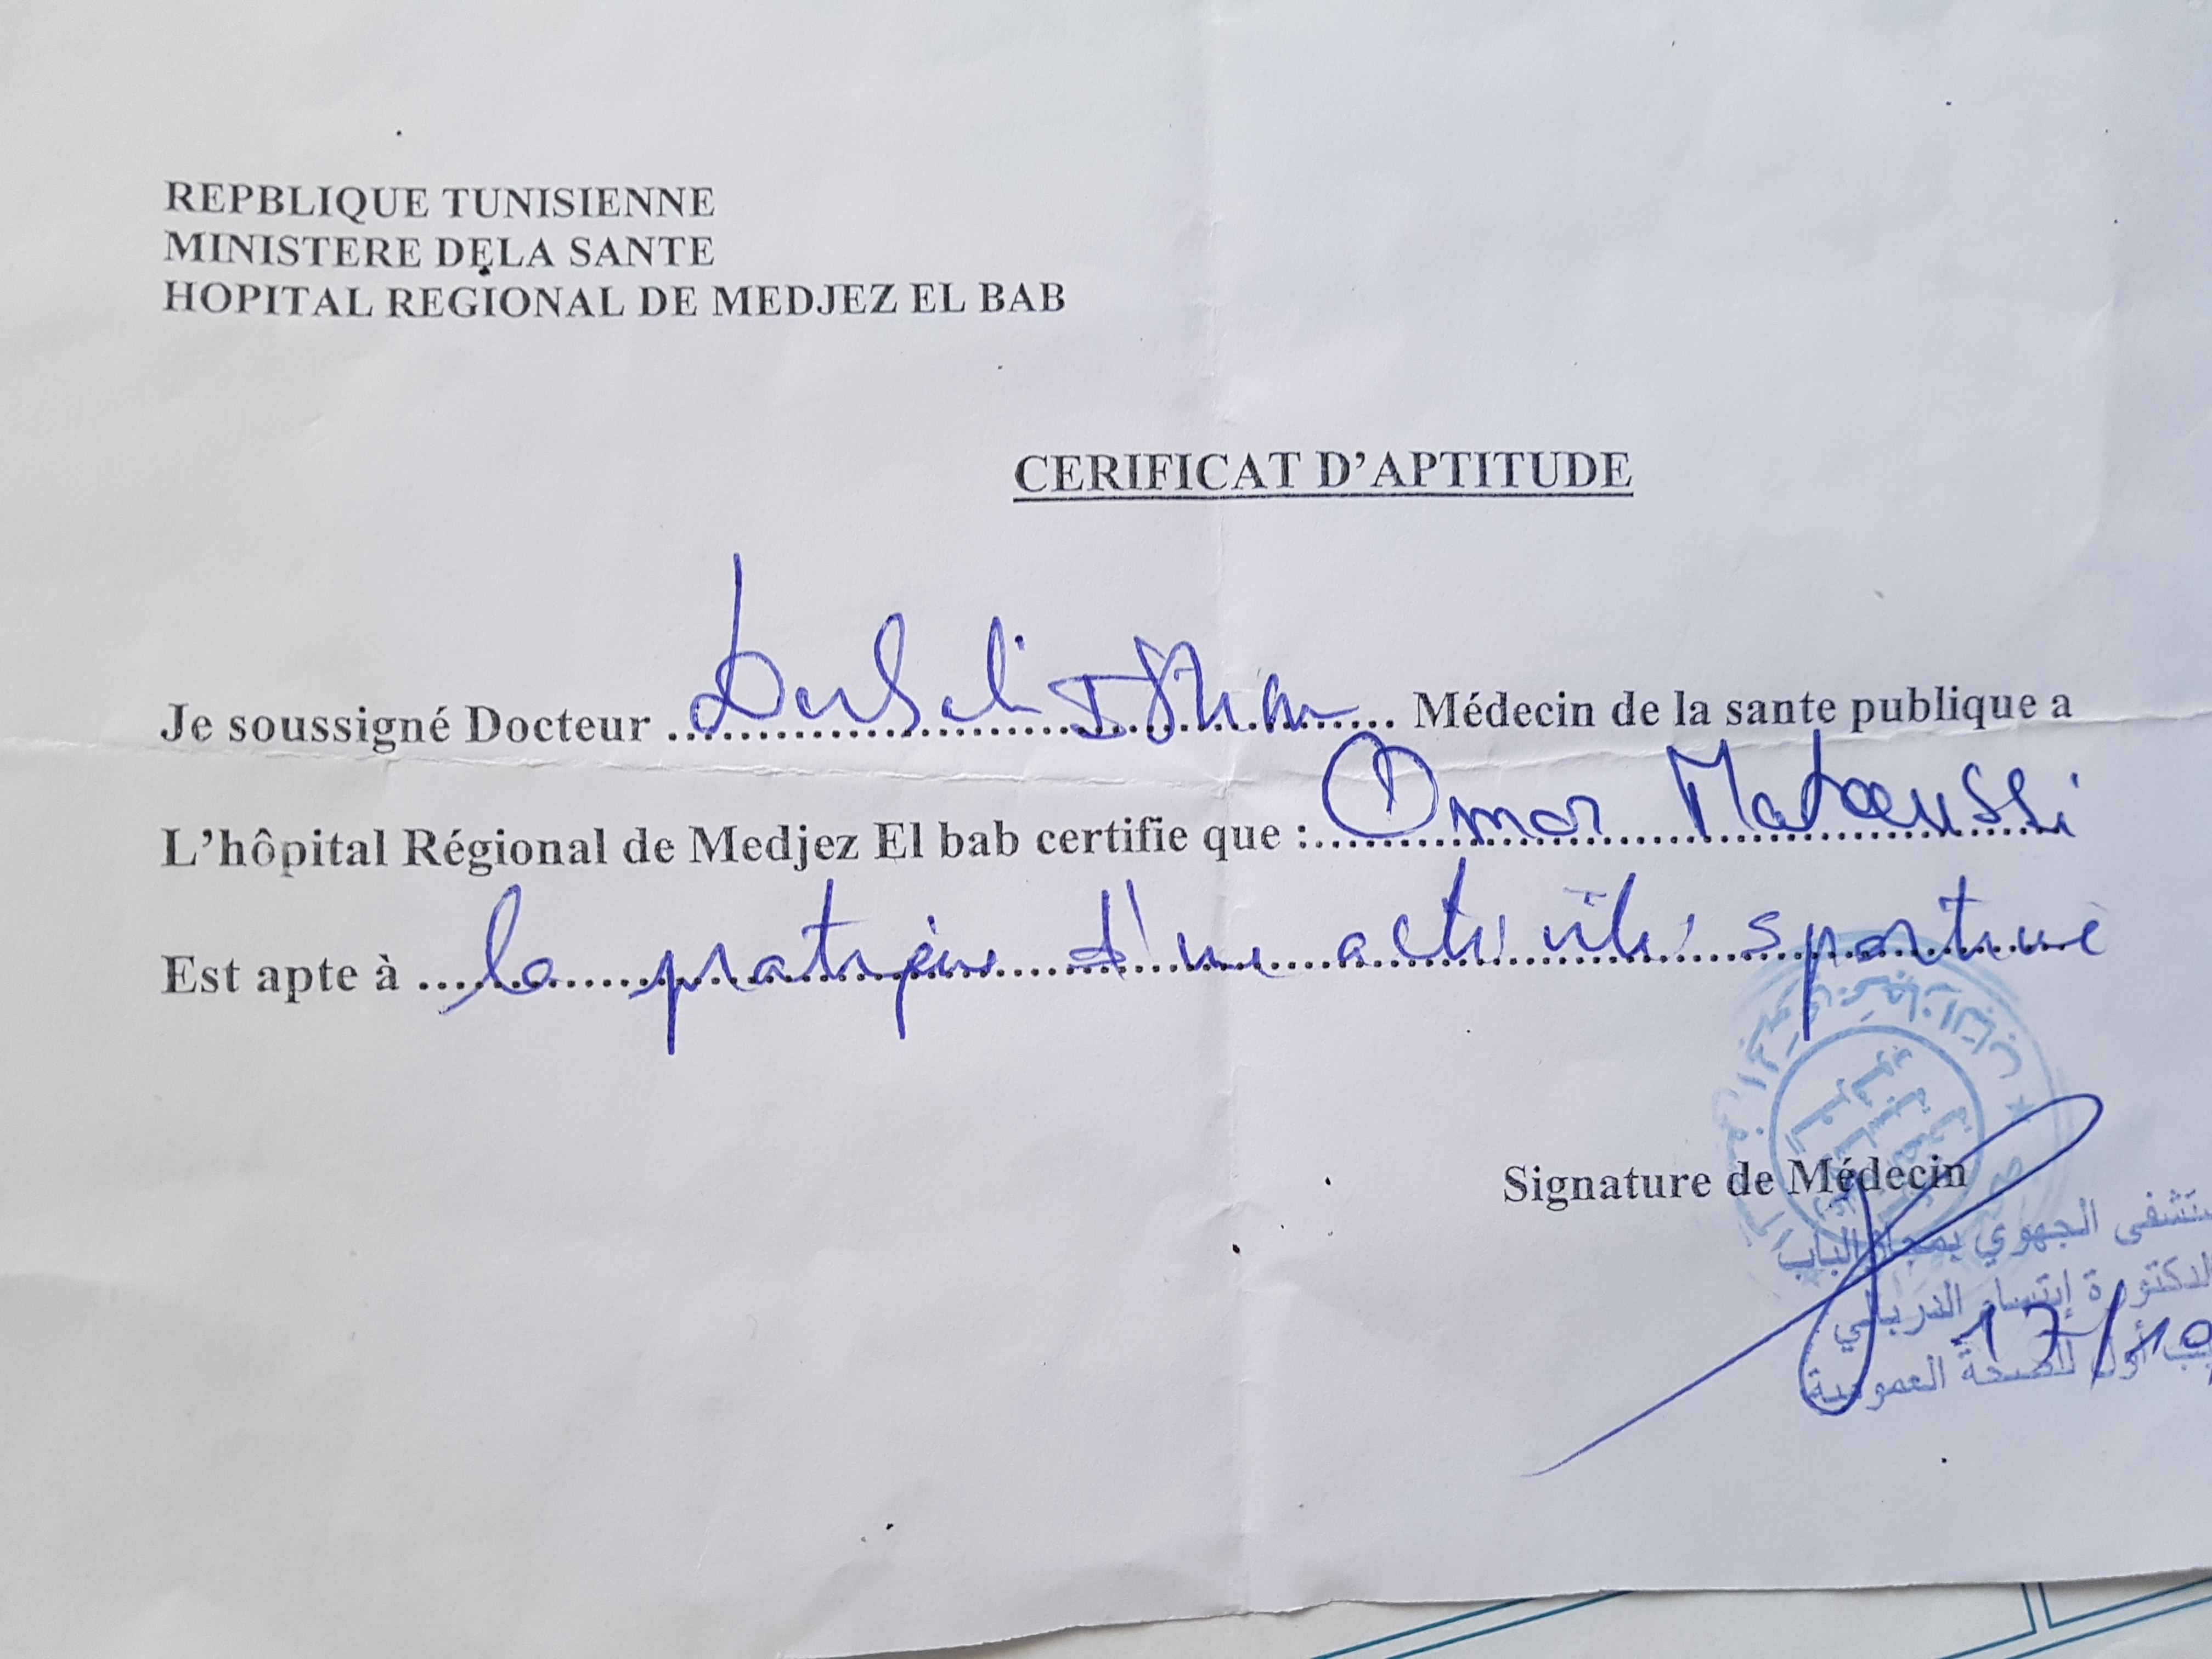 REPBLIQUE TUNISIENNE
MINISTERE DELA SANTE
HOPITAL REGIONAL DE MEDJEZ EL BAB
CERIFICAT D'APTITUDE
Je soussigné Docteur .................... Médecin de la sante publique a
L'hôpital Régional de Medjez El bab certifie que : Omar
Est apte à la pratique d'une activité sportive
Signature de Médecin
الجهوي بمجاز الباب
إبتسام الدربالي
17/10
أول للصحة العمومية